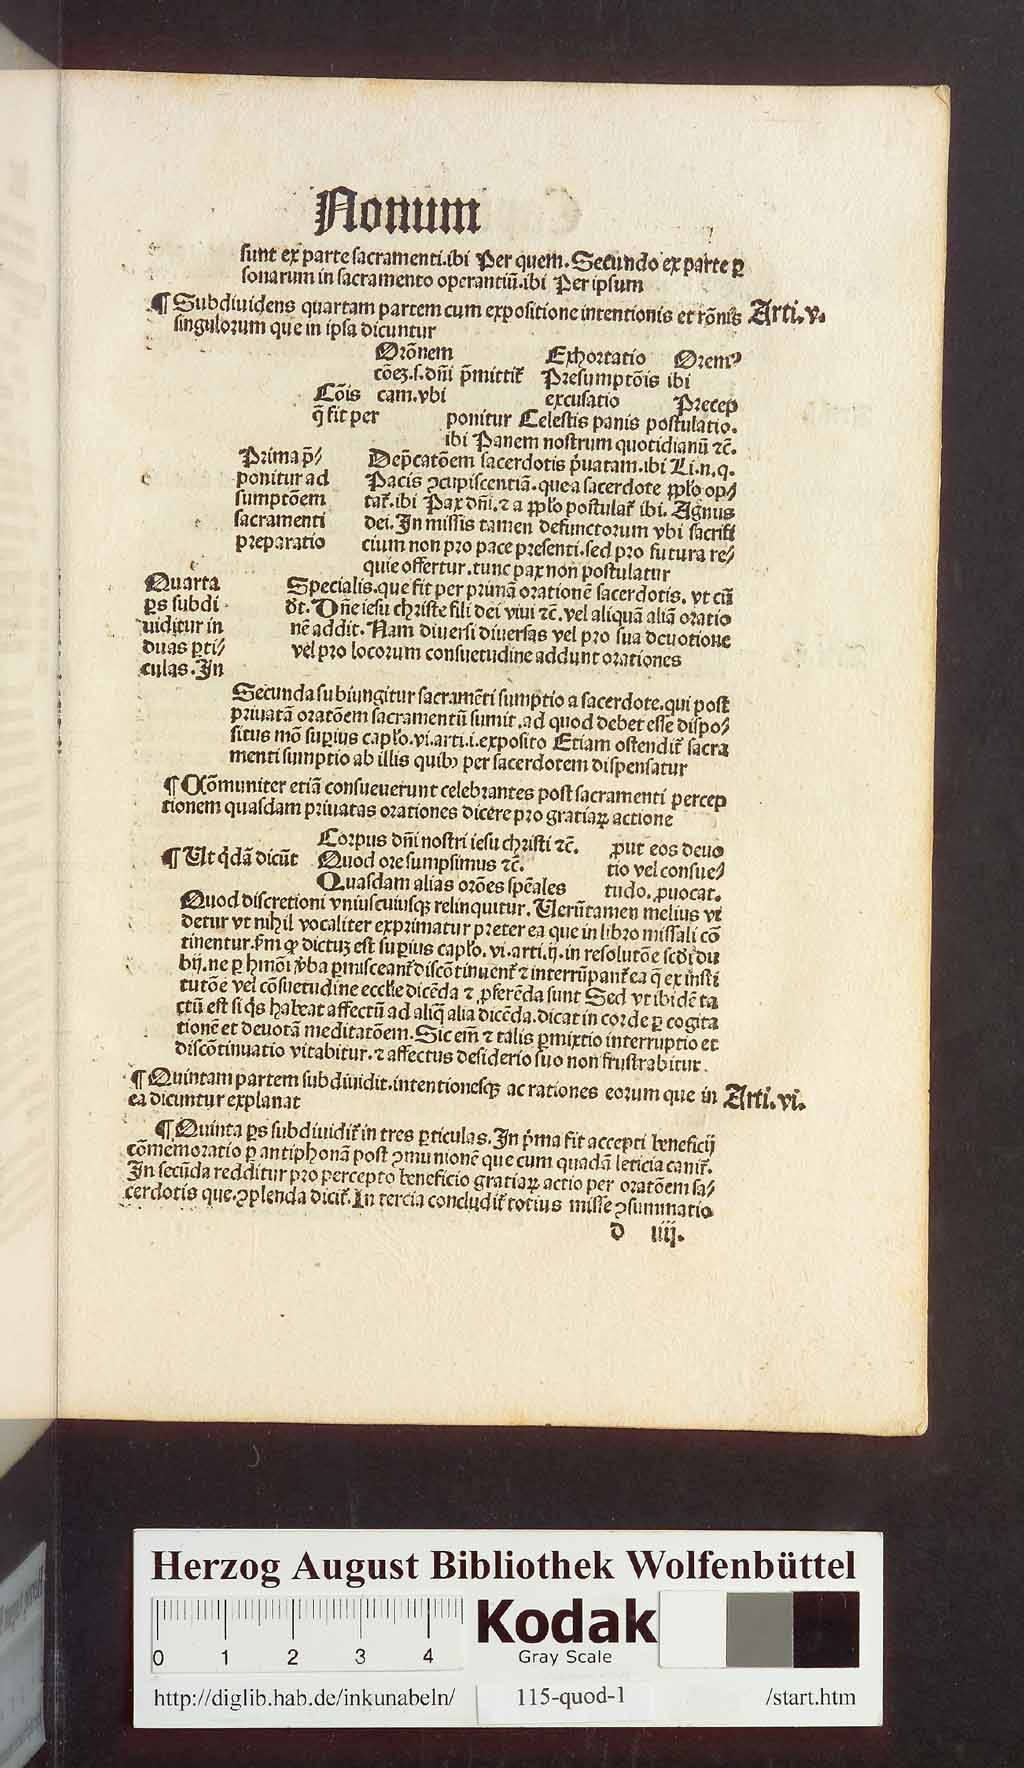 Nonum
sunt ex parte sacramenti. ibi Per quem. Secundo ex parte ꝑ
sonarum in sacramento operantiū. ibi Per ipsum
¶ Subdiuidens quartam partem cum expositione intentionis et rōnis Arti. v.
singulorum que in ipsa dicuntur
Orōnem Exhortatio Orem⁹
cōeꝫ. s. dn̄i p̄mittit᷑ Presumptōis ibi
Cōis cam. vbi excusatio Precep
q̄ fit per ponitur Celestis panis postulatio.
ibi Panem nostrum quotidianū ⁊c̄.
Prima p̄⸗ Dep̄catōem sacerdotis p̄uatam. ibi Li. n. q.
ponitur ad Pacis ꝯcupiscentiā. que a sacerdote ꝓpl̓o op⸗
sumptōem tat᷑. ibi Pax dn̄i. ⁊ a ꝓpl̓o postulat᷑ ibi. Agnus
sacramenti dei. In missis tamen defunctorum vbi sacrifi
preparatio cium non pro pace presenti. sed pro futura re⸗
quie offertur. tunc pax non postulatur
Quarta Specialis. que fit per primā orationē sacerdotis. vt cū
ꝑs subdi d̓t. Dn̄e iesu christe fili dei viui ⁊c̄. vel aliquā aliā oratio
uiditur in nē addit. Nam diuersi diuersas vel pro sua deuotione
duas ꝑti⸗ vel pro locorum consuetudine addunt orationes
culas. In
Secunda subiungitur sacramēti sumptio a sacerdote. qui post
priuatā oratōem sacramentū sumit. ad quod debet esse dispo⸗
situs mō suꝑius capl̓o. vi. arti. i. exposito Etiam ostendit᷑ sacra
menti sumptio ab illis quibꝫ per sacerdotem dispensatur
¶ Cōmuniter etiā consueuerunt celebrantes post sacramenti percep
tionem quasdam priuatas orationes dicere pro gratiaꝝ actione
Corpus dn̄i nostri iesu christi ⁊c̄. ꝓut eos deuo
¶ Ut q̄dā dicūt Quod ore sumpsimus ⁊c̄. tio vel consue⸗
Quasdam alias orōes spēales tudo. ꝓuocat.
Quod discretioni vniuscuiusqꝫ relinquitur. Uerūtamen melius vi
detur vt nihil vocaliter exprimatur preter ea que in libro missali cō
tinentur. ꝑm qd̓ dictuꝫ est suꝑius capl̓o. vi. arti. ij. in resolutōe scd̓i du
bij. ne ꝑ hmōi v̓ba ꝑmisceant᷑ discōtinuent᷑ ⁊ interrūpant᷑ ea q̄ ex insti
tutōe vel cōsuetudine eccl̓ie dicēda ⁊ ꝓferēda sunt Sed vt ibidē ta
ctū est si q̄s habeat affectū ad aliq̄ alia dicēda. dicat in corde ꝑ cogita
tionē et deuotā meditatōem. Sic em̄ ⁊ talis ꝑmixtio interruptio et
discōtinuatio vitabitur. ⁊ affectus desiderio suo non frustrabitur.
¶ Quintam partem subdiuidit. intentionesqꝫ ac rationes eorum que in Arti. vi.
ea dicuntur explanat
¶ Quinta ꝑs subdiuidit᷑ in tres ꝑticulas. In p̄ma fit accepti beneficij
cōmemoratio ꝑ antiphonā post ꝯmunionē que cum quadā leticia canit᷑.
In secūda redditur pro percepto beneficio gratiaꝝ actio per oratōem sa⸗
cerdotis que. ꝯplenda dicit᷑. In tercia concludit᷑ totius misse ꝯsummatio
d iiij.
Herzog August Bibliothek Wolfenbüttel
0 1 2 3 4
Kodak
Gray Scale
http://diglib.hab.de/inkunabeln/ 115-quod-1 /start.htm